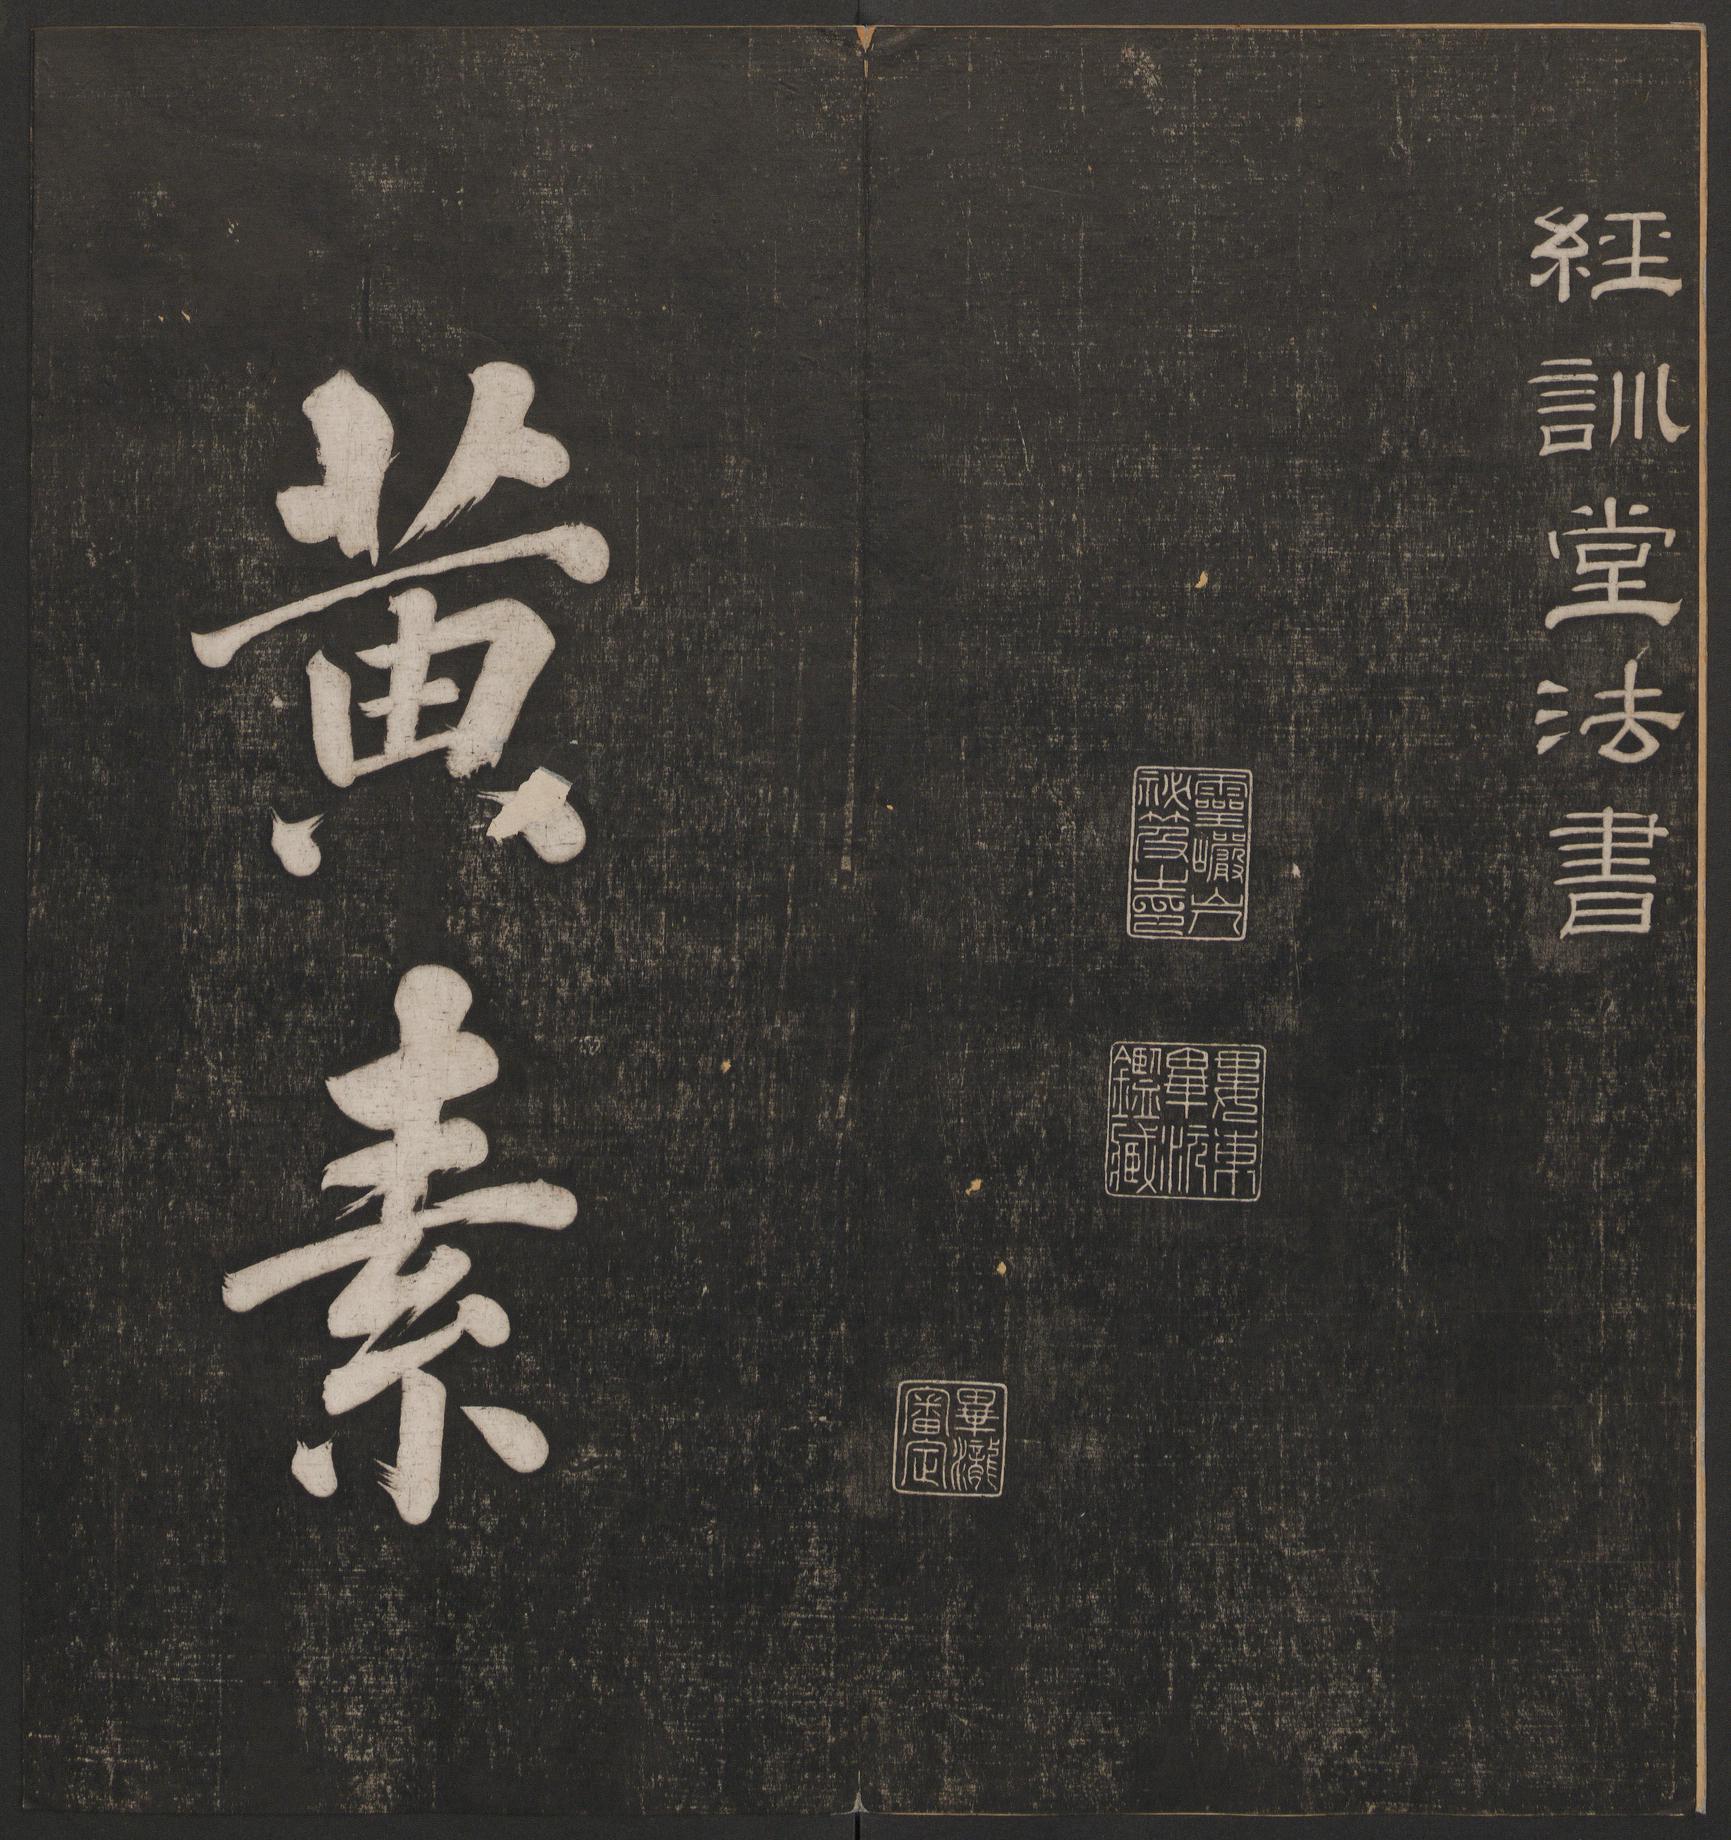 經訓堂法書
靈巖山人
祕笈之印
婁東
畢沅
鑑藏
畢瀧
審定
黃素